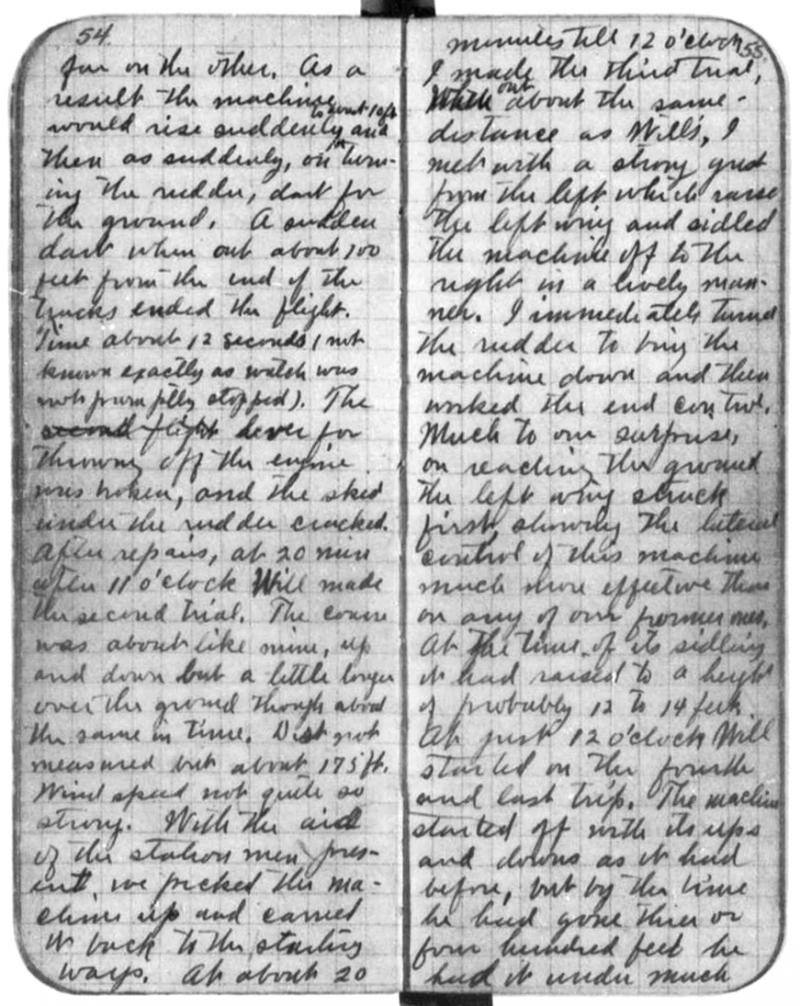 54.
far on the other. As a
result the machine
would rise suddenly to about 10 ft and
then as suddenly, on turn-
ing the rudder, dart for
the ground. A sudden
dart when out about 100
feet from the end of the
tracks ended the flight.
Time about 12 seconds (not
known exactly as watch was
not promptly stopped). The
second flight lever for
throwing off the engine
was broken, and the skid
under the rudder cracked.
After repairs, at 20 min
after 11 o'clock Will made
the second trial. The course
was about like mine, up
and down but a little longer
over the ground though about
the same in time. Dist not
measured but about 175 ft.
Wind speed not quite so
strong. With the aid
of the station men pres-
ent, we picked the ma-
chine up and carried
it back to the starting
ways. At about 20
minutes till 12 o'clock 55
I made the third trial,
When out about the same
distance as Will's, I
met with a strong gust
from the left which raised
the left wing and sidled
the machine off to the
right in a lively man-
ner. I immediately turned
the rudder to bring the
machine down and then
worked the end control.
Much to our surprise,
on reaching the ground
the left wing struck
first, showing the lateral
control of this machine
much more effective than
on any of our former ones.
At the time of its sidling
it had raised to a height
of probably 12 to 14 feet.
At just 12 o'clock Will
started on the fourth
and last trip. The machine
started off with its ups
and downs as it had
before, but by the time
he had gone three or
four hundred feet he
had it under much